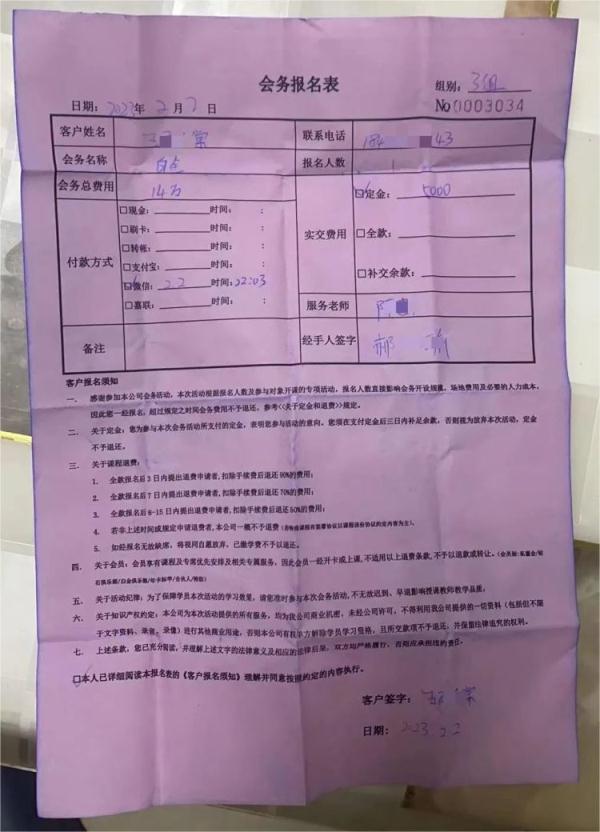 会务报名表
组别：3组
日期：2023年2月2日
No 0003034
客户姓名
联系电话 184 43
会务名称
报名人数 1
会务总费用 14万
付款方式
□现金： 时间： ：
□刷卡： 时间： ：
□转帐： 时间： ：
□支付宝： 时间： ：
☑微信：2.2 时间：22:03
□嘉联： 时间： ：
实交费用
☑定金：5000
□全款：
□补交余款：
服务老师
备注
经手人签字 郝
客户报名须知
一、 感谢参加本公司会务活动，本次活动根据报名人数及参与对象开课的专项活动，报名人数直接影响会务开设规模，场地费用及必要的人力成本，
因此您一经报名，超过规定之时间会务费用不予退还，参考<<关于定金和退费>>规定。
二、 关于定金：您为参与本次会务活动所支付的定金，表明您参与活动的意向。您须在支付定金后三日内补足余款，否则视为放弃本次活动，定金
不予退还。
三、 关于课程退费：
1. 全款报名后3日内提出退费申请者，扣除手续费后退还90%的费用；
2. 全款报名后7日内提出退费申请者，扣除手续费后退还70%的费用；
3. 全款报名后8-15日内提出退费申请者，扣除手续费后退还50%的费用；
4. 若非上述时间或规定申请退费者，本公司一概不予退费
5. 如经报名无故缺席，将视同自愿放弃，已缴学费不予以退还。
四、 关于会员：会员享有课程及专席优先安排及相关专属服务，因此会员一经开卡或上课，不适用以上退费条款，不予以退款或转让。
五、 关于活动纪律：为了保障学员本次活动的学习效果，请您准时参与本次会务活动，不无故迟到、早退影响授课教师教学品质；
六、 关于知识产权约定：本公司为本次活动提供的所有服务，均为我公司商业机密，未经公司许可，不得利用我公司提供的一切资料（包括但不限
于文字资料、录音、录像）进行其他商业用途，否则本公司有权单方解除学员学习资格，且所交款项不予退还，并保留法律追究的权利。
七、 上述条款，您已充分阅读，并理解上述文字的法律意义及相应的法律后果，双方均严格履行，否则应承担违约责任。
□本人已详细阅读本报名表的《客户报名须知》理解并同意按照约定的内容执行。
客户签字：
日期：2023.2.2